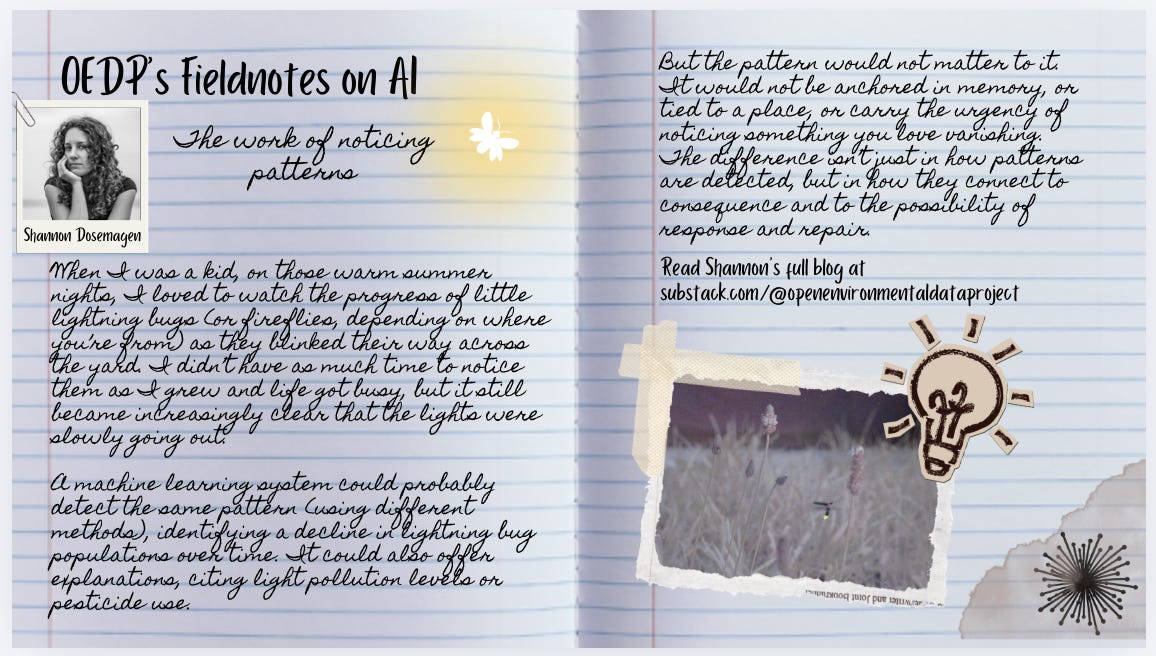 OEDP's Fieldnotes on AI
The work of noticing
patterns
Shannon Dosemagen
When I was a kid, on those warm summer
nights, I loved to watch the progress of little
lightning bugs (or fireflies, depending on where
you're from) as they blinked their way across
the yard. I didn't have as much time to notice
them as I grew and life got busy, but it still
became increasingly clear that the lights were
slowly going out.
A machine learning system could probably
detect the same pattern (using different
methods), identifying a decline in lightning bug
populations over time. It could also offer
explanations, citing light pollution levels or
pesticide use.
But the pattern would not matter to it.
It would not be anchored in memory, or
tied to a place, or carry the urgency of
noticing something you love vanishing.
The difference isn't just in how patterns
are detected, but in how they connect to
consequence and to the possibility of
response and repair.
Read Shannon's full blog at
substack.com/@openenvironmentaldataproject
writer and Joint